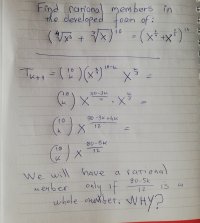 Find rational members in
the developed form of:
(⁴√x³ + ³√x)¹⁰ = (x^(3/4) + x^(1/3))¹⁰
T_(k+1) = (10 k) (x^(3/4))^(10-k) x^(k/3) =
(10 k) x^((30-3k)/4) · x^(k/3) =
(10 k) x^((90-9k+4k)/12) =
(10 k) x^((90-5k)/12)
We will have a rational
member only if (90-5k)/12 is a
whole number. WHY?